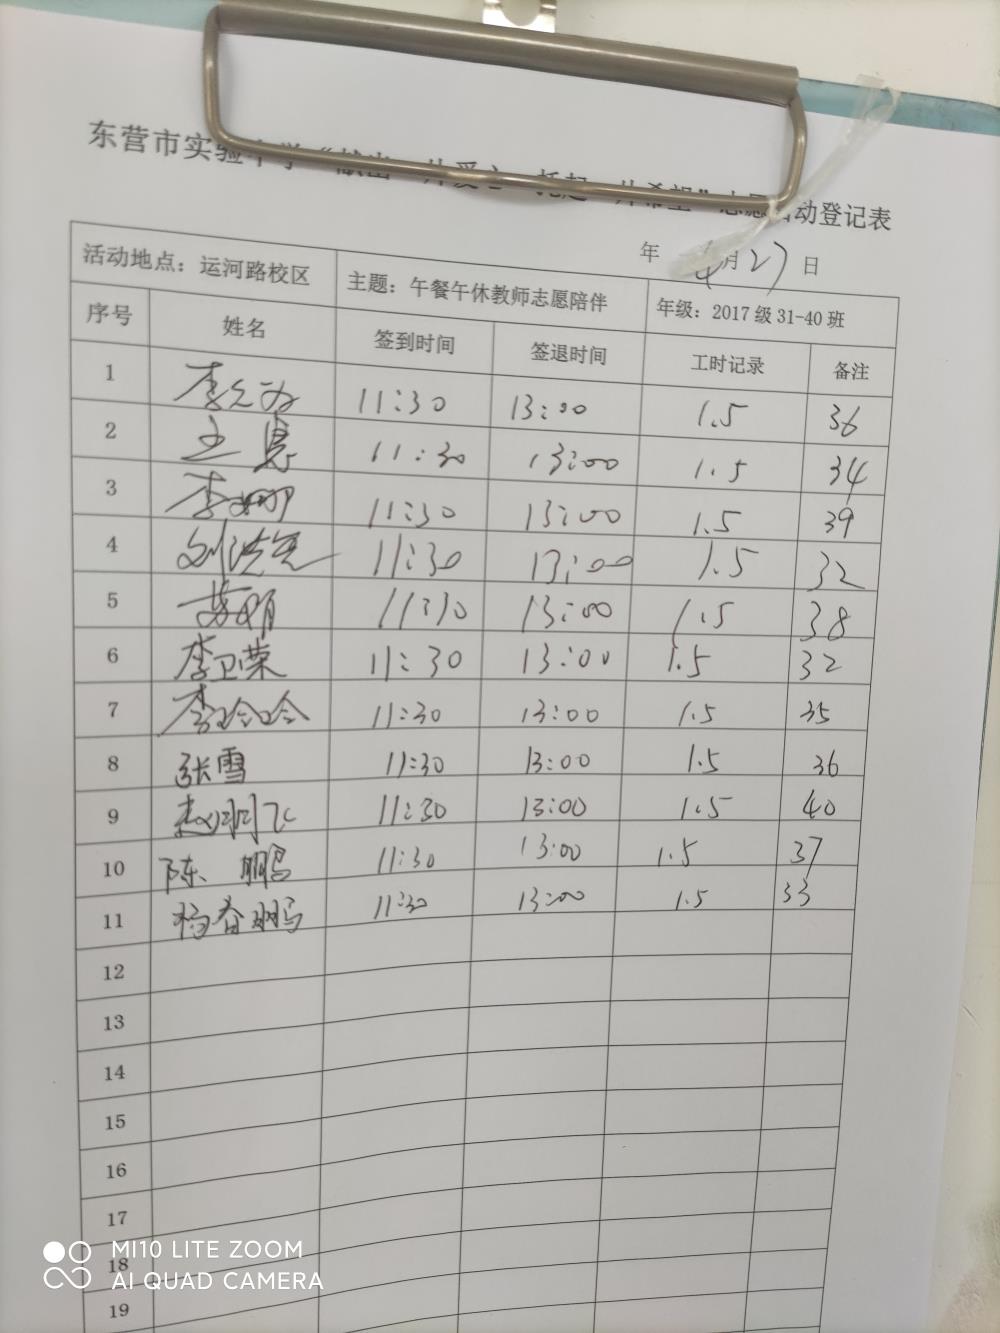 东营市实验中学“献出一片爱心 托起一片希望”志愿活动登记表
年 4月27日
活动地点：运河路校区 主题：午餐午休教师志愿陪伴 年级：2017级31-40班
序号 姓名 签到时间 签退时间 工时记录 备注
1 11:30 13:00 1.5 36
2 11:30 13:00 1.5 34
3 李娜 11:30 13:00 1.5 39
4 11:30 13:00 1.5 32
5 苏娟 11:30 13:00 1.5 38
6 李卫荣 11:30 13:00 1.5 32
7 李玲玲 11:30 13:00 1.5 35
8 张雪 11:30 13:00 1.5 36
9 11:30 13:00 1.5 40
10 陈鹏 11:30 13:00 1.5 37
11 杨春鹏 11:30 13:00 1.5 33
12
13
14
15
16
17
18
19
MI10 LITE ZOOM
AI QUAD CAMERA